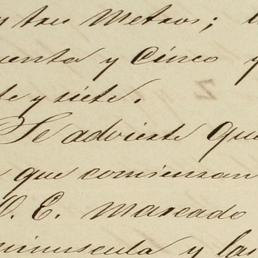 y tres metros;
enta y cinco y
te y siete.
Se advierte que
que comienzan
O. E. Marcado
minuscula y las